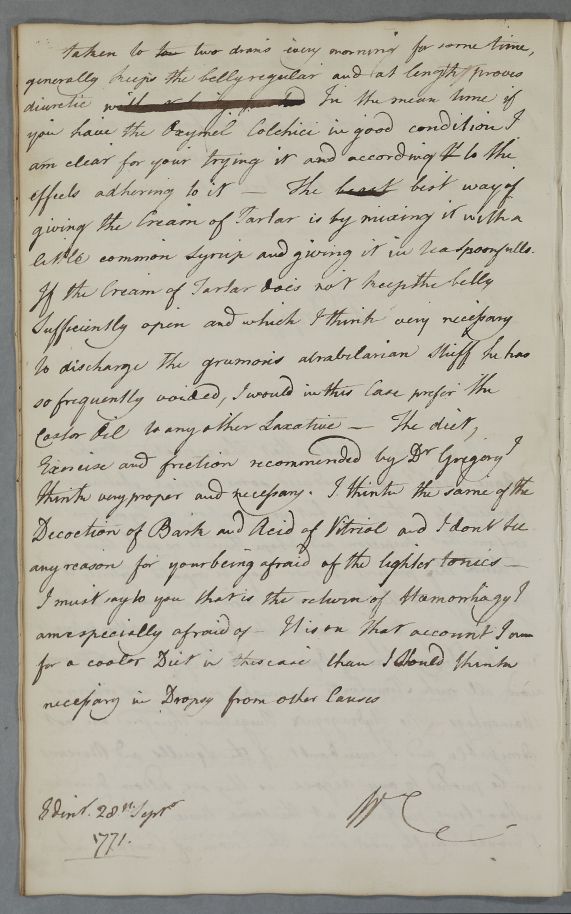 taken to two drams every morning for some time,
generally keeps the belly regular and at length proves
diuretic In the mean time if
you have the Oxymel Colchici in good condition I
am clear for your trying it and according to the
effects adhering to it — The best way of
giving the Cream of Tartar is by mixing it with a
little common Syrup and giving it in teaspoonfulls.
If the Cream of Tartar does not keep the belly
Sufficiently open and which I think very necessary
to discharge the grumous atrabilarian stuff he has
so frequently voided, I would in this Case prefer the
Castor Oil to any other Laxative — The diet,
Exercise and friction recommended by Dr Gregory I
think very proper and necessary. I think the same of the
Decoction of Bark and Acid of Vitriol and I dont see
any reason for your being afraid of the lighter tonics —
I must say to you that is the return of Hæmorrhagy I
am especially afraid of — It is on that account I am
for a cooler Diet in this case than I should think
necessary in Dropsy from other Causes
Edinr. 28th Septr
1771.
WC